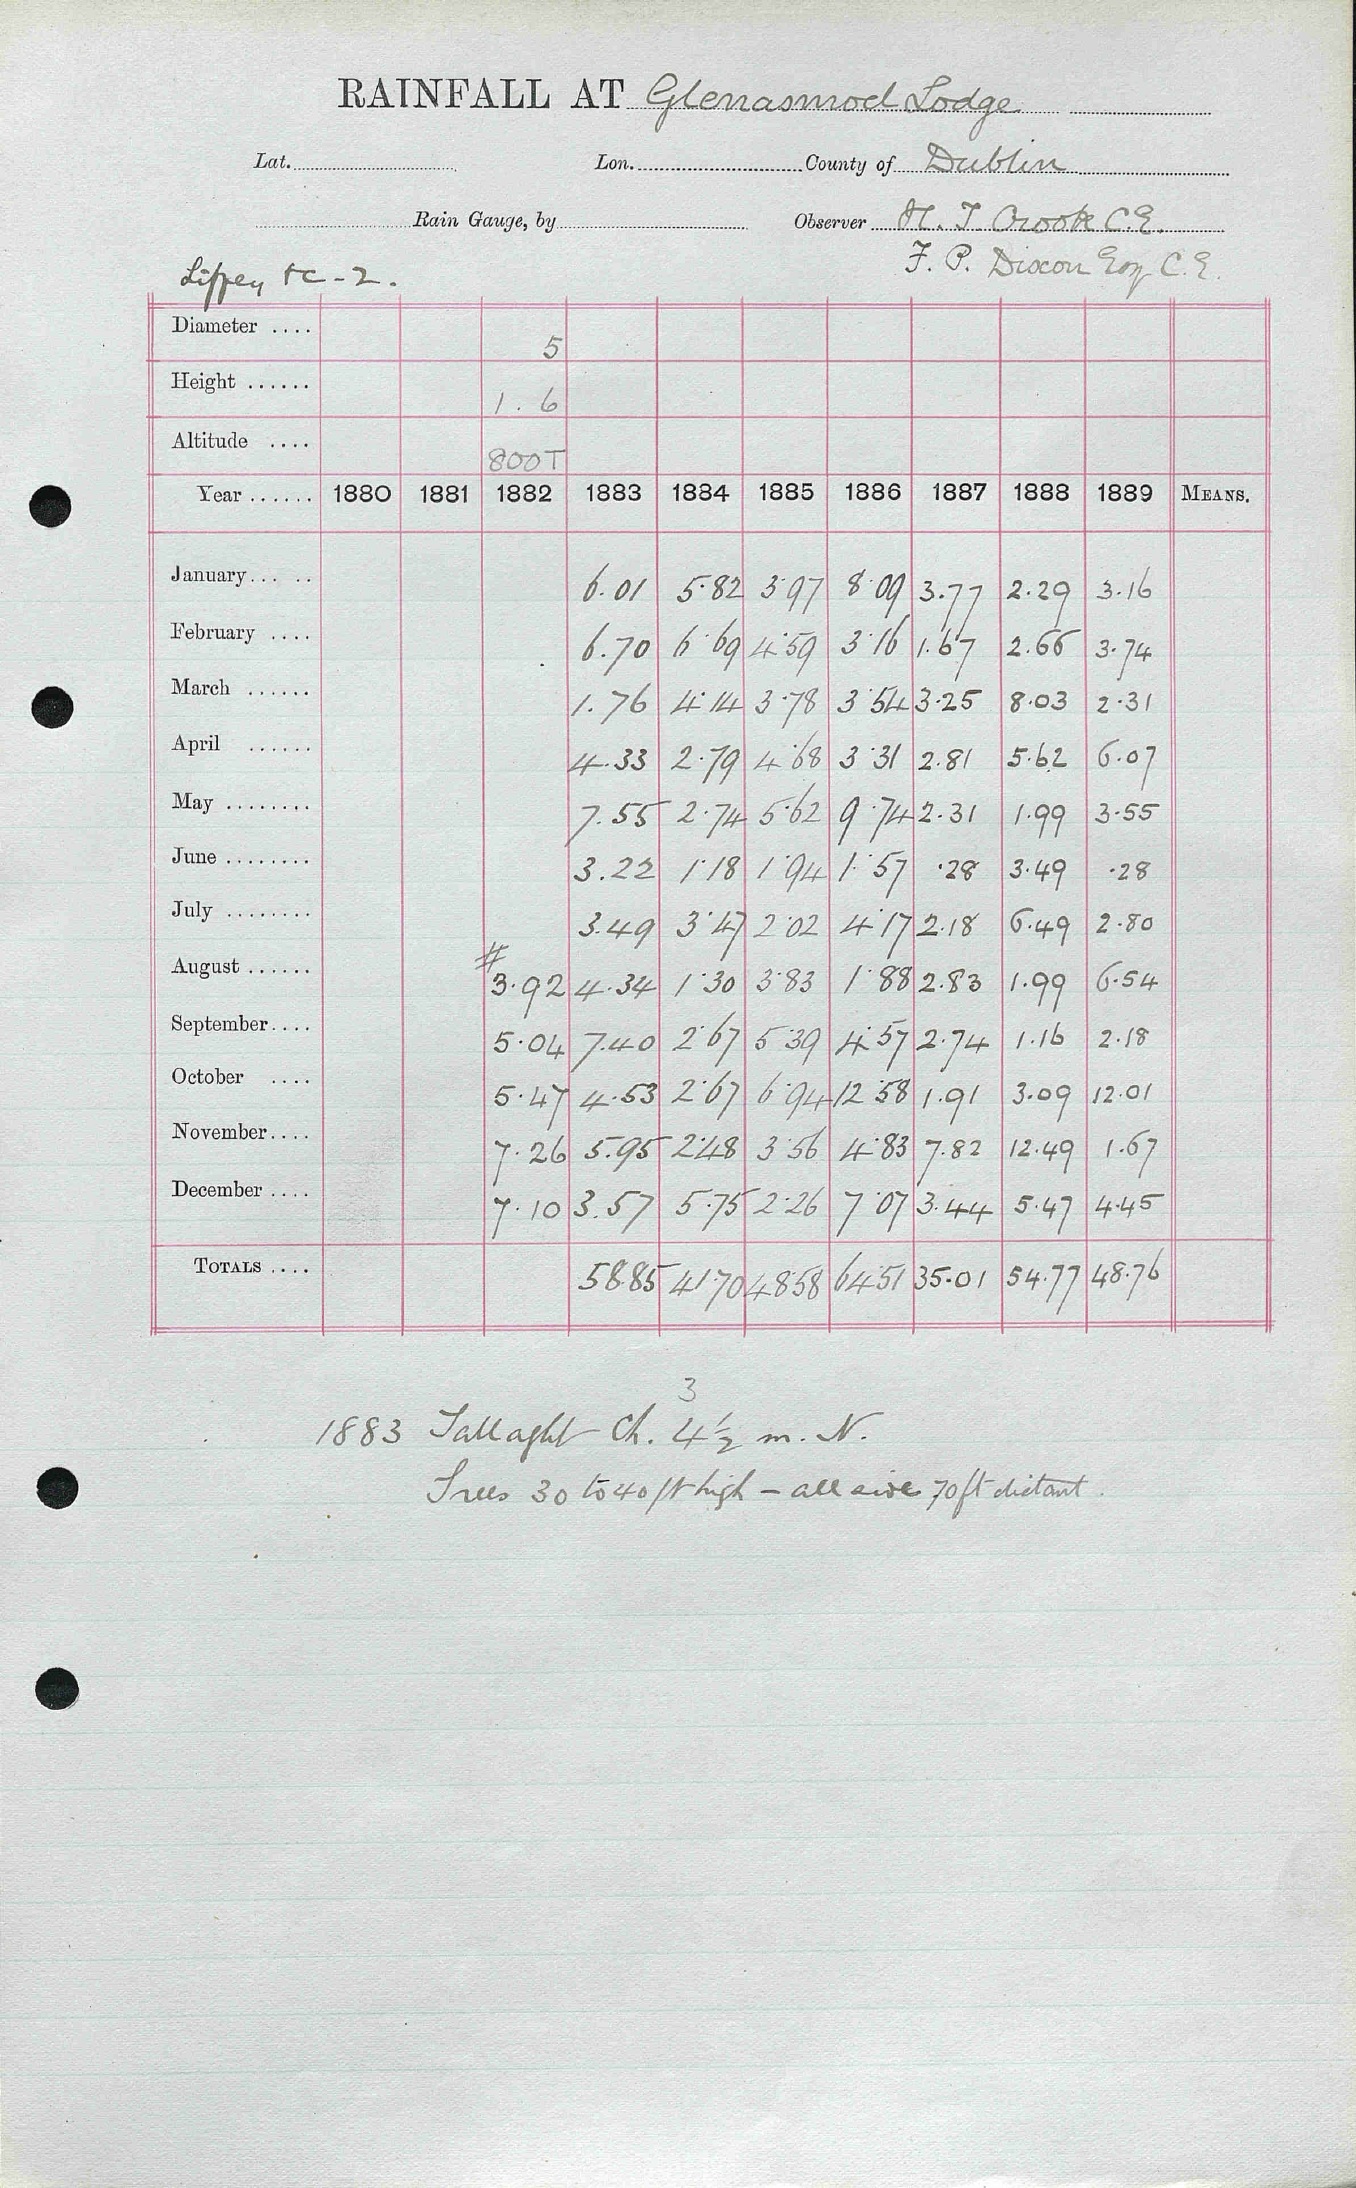 RAINFALL AT Glenasmod Lodge
Lat. Lon. County of Dublin
Rain Gauge, by Observer H. T. Crook C.E.
F. P. Dixon Esq C.E.
Liffey &c - 2.
Diameter .... 5
Height ...... 1 . 6
Altitude .... 800T
Year ...... 1880 1881 1882 1883 1884 1885 1886 1887 1888 1889 MEANS.
January... .. 6.01 5.82 3.97 8.09 3.77 2.29 3.16
February .... 6.70 6.69 4.59 3.16 1.67 2.66 3.74
March ...... 1.76 4.14 3.78 3.54 3.25 8.03 2.31
April ...... 4.33 2.79 4.68 3.31 2.81 5.62 6.07
May ........ 7.55 2.74 5.62 9.74 2.31 1.99 3.55
June ........ 3.22 1.18 1.94 1.57 .28 3.49 .28
July ........ 3.49 3.47 2.02 4.17 2.18 6.49 2.80
August ...... # 3.92 4.34 1.30 3.83 1.88 2.83 1.99 6.54
September.... 5.04 7.40 2.67 5.39 4.57 2.74 1.16 2.18
October .... 5.47 4.53 2.67 6.94 12.58 1.91 3.09 12.01
November.... 7.26 5.95 2.48 3.56 4.83 7.82 12.49 1.67
December .... 7.10 3.57 5.75 2.26 7.07 3.44 5.47 4.45
TOTALS .... 58.85 41.70 48.58 64.51 35.01 54.77 48.76
3
1883 Tallaght Ch. 4½ m. N.
Trees 30 to 40 ft high - all 70ft distant.